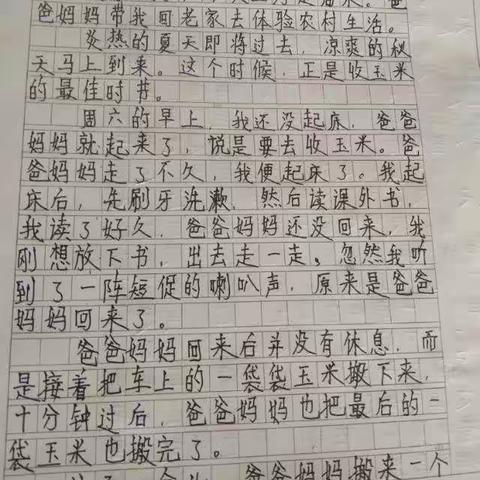 爸妈妈带我回老家去体验农村生活。
炎热的夏天即将过去，凉爽的秋
天马上到来。这个时候，正是收玉米
的最佳时节。
周六的早上，我还没起床，爸爸
妈妈就起来了，说是要去收玉米。爸
爸妈妈走了不久，我便起床了。我起
床后，先刷牙洗漱，然后读课外书，
我读了好久，爸爸妈妈还没回来，我
刚想放下书，出去走一走。忽然我听
到了一阵短促的喇叭声，原来是爸爸
妈妈回来了。
爸爸妈妈回来后并没有休息，而
是接着把车上的一袋袋玉米搬下来，
十分钟过后，爸爸妈妈也把最后的一
袋玉米也搬完了。
爸爸妈妈搬来一个